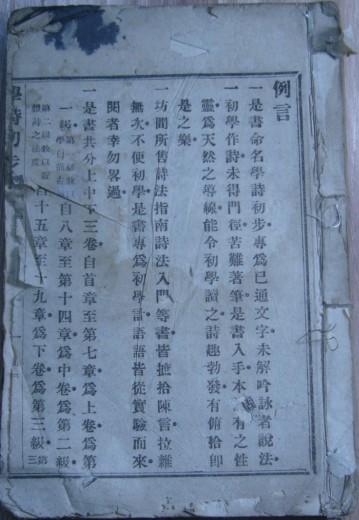 例言
一是書命名學詩初步專爲已通文字未解吟詠者說法
一初學作詩未得門徑苦難著筆是書入手本有之性
靈爲天然之導線能令初學讀之詩趣勃發有俯拾卽
是之樂
一坊間所售詩法指南詩法入門等書皆摭拾陳言拉雜
無次不便初學是書專爲初學說法語語皆從實驗而來
閱者幸勿畧過
一是書共分上中下三卷自首章至第七章爲上卷爲第
一級 自八章至第十四章爲中卷爲第二級
第二級教以 自十五章至十九章爲下卷爲第三級 第三
學詩初步